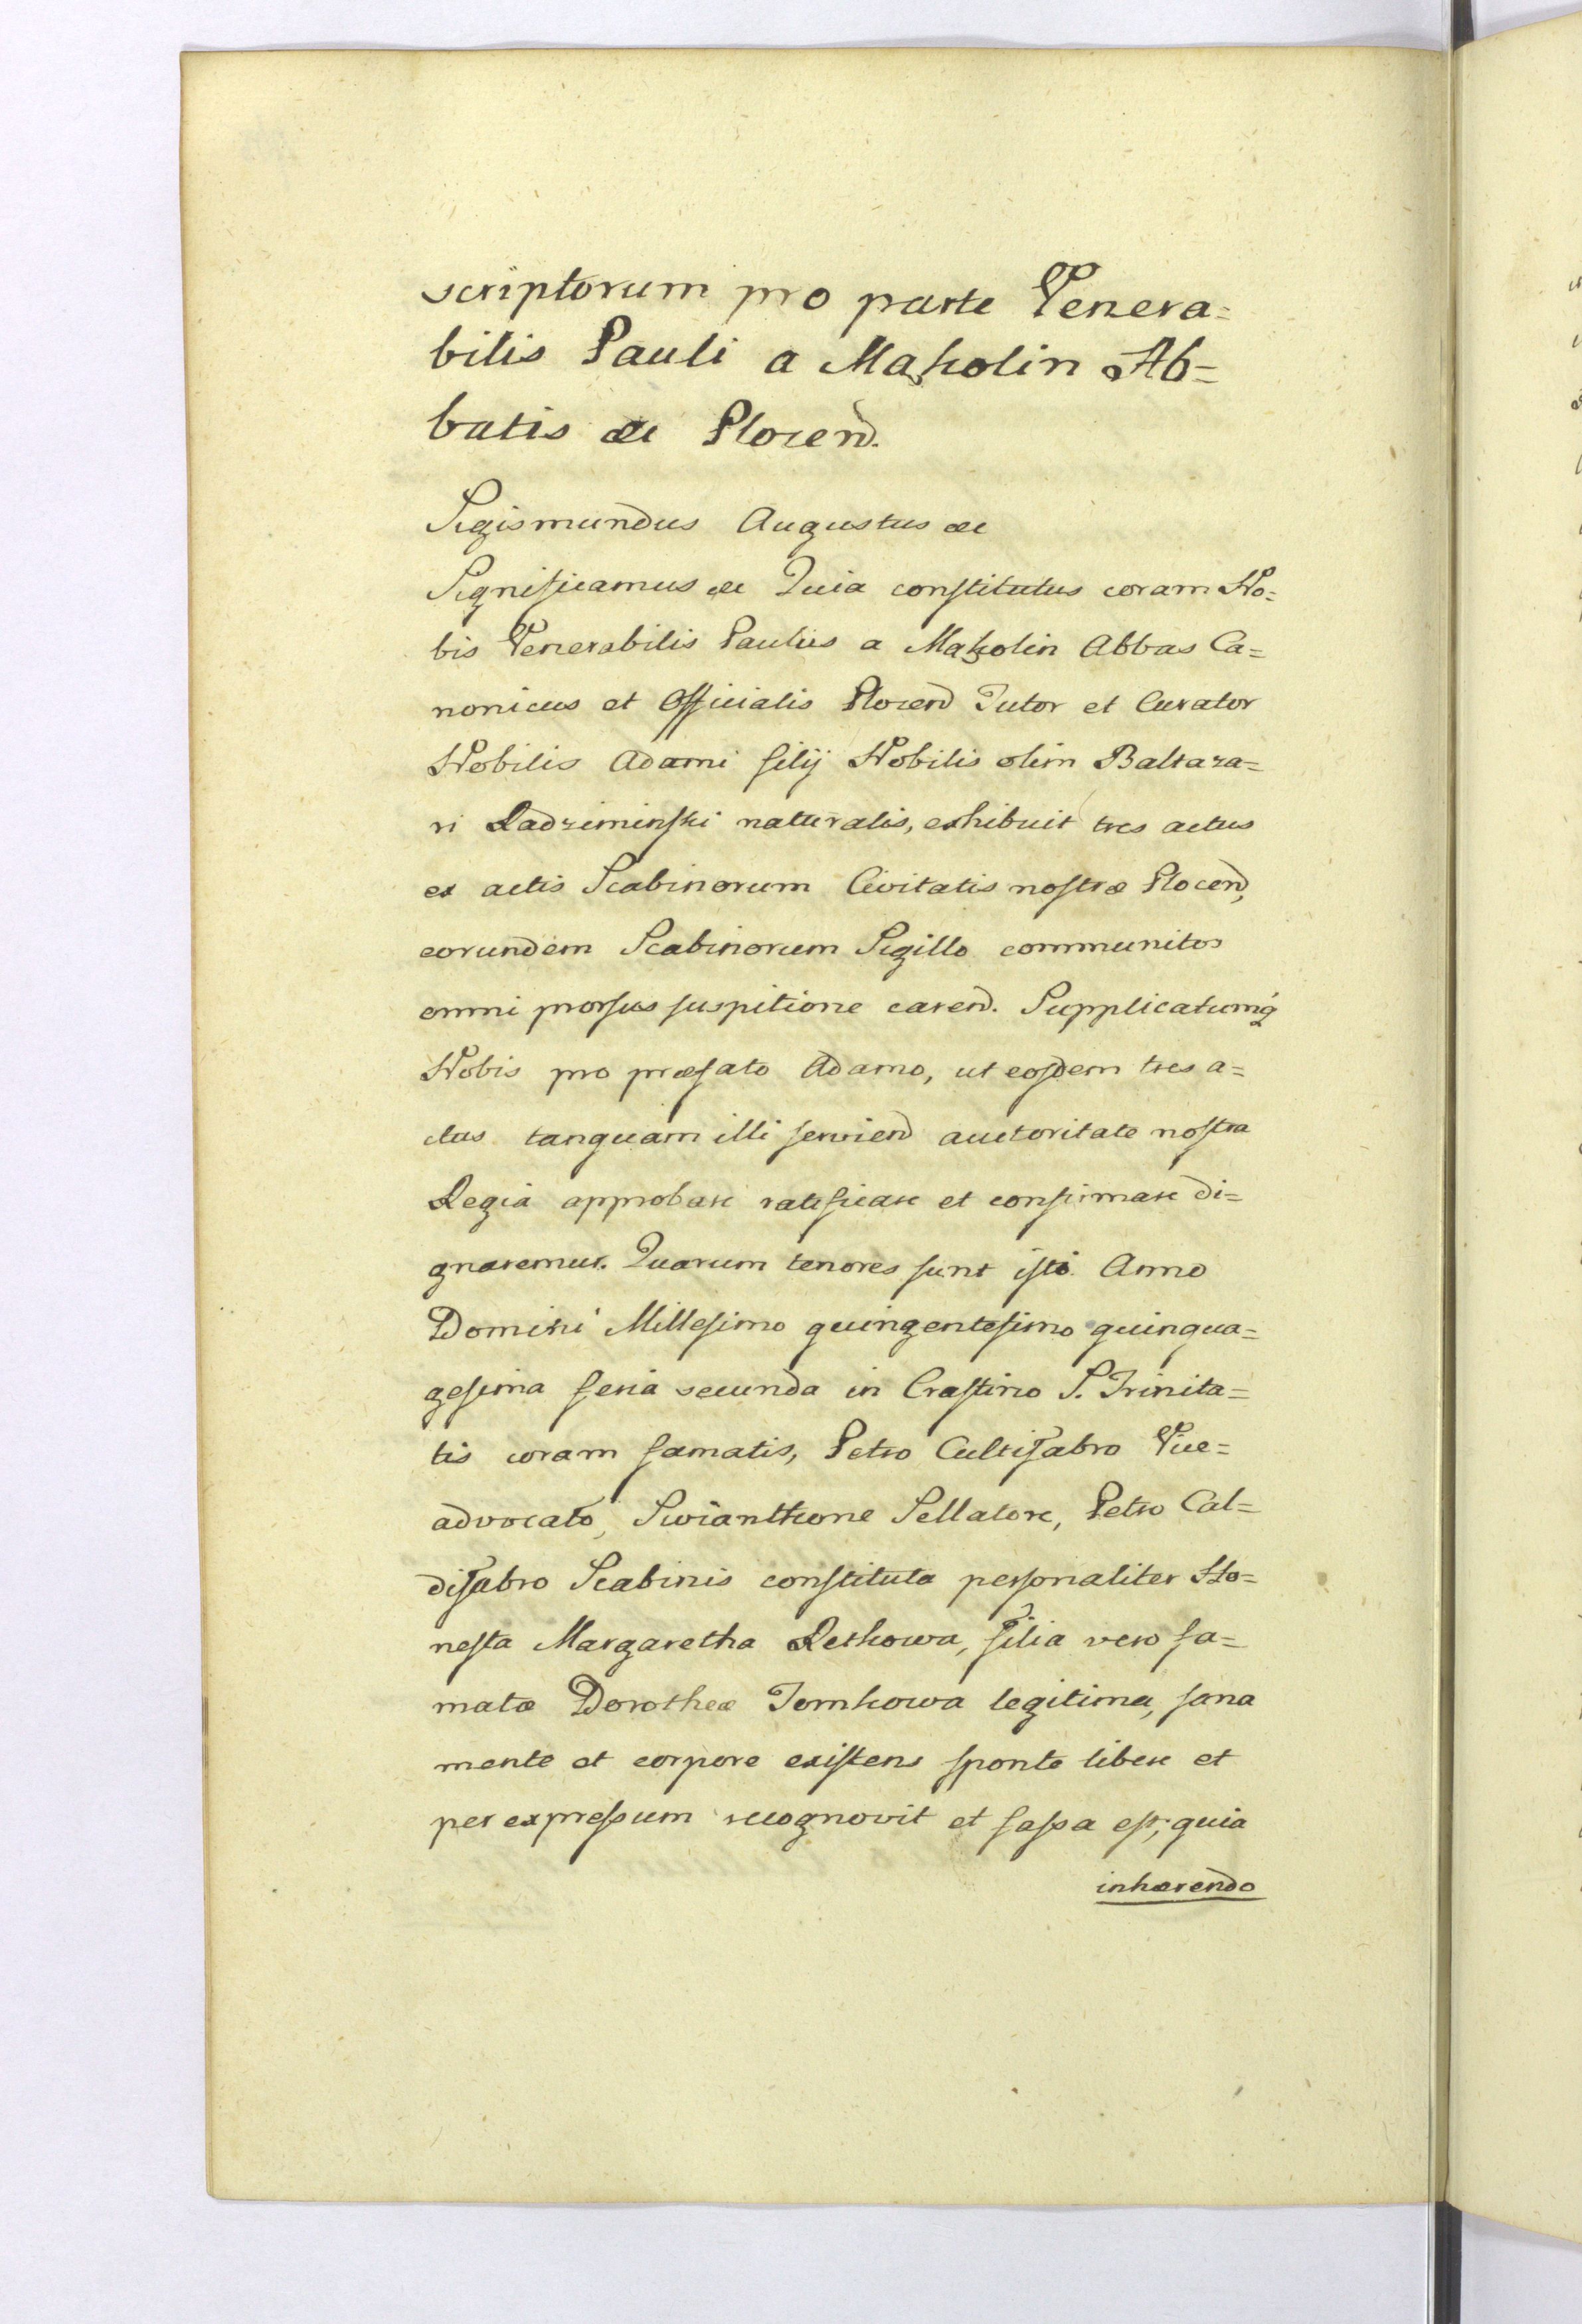 scriptorum pro parte Venera=
bilis Pauli a Makolin Ab=
batis &c Plocen̄.
Sigismundus Augustus &c
Significamus &c Quia constitutus coram No=
bis Venerabilis Paulus a Makolin Abbas Ca=
nonicus et Officialis Plocen̄ Tutor et Curator
Nobilis Adami filij Nobilis olim Baltaza=
ri Radziminski naturalis, exhibuit tres actus
ex actis Scabinorum Civitatis nostræ Plocen̄,
eorundem Scabinorum Sigillo communitos
omni prorsus suspitione caren̄. Supplicatumq́
Nobis pro præfato Adamo, ut eosdem tres a=
ctus tanquam illi servien̄ auctoritate nostra
Regia approbare ratificare et confirmare di=
gnaremur. Quorum tenores sunt isti. Anno
Domini Millesimo quingentesimo quinqua=
gesima feria secunda in Crastino S. Trinita=
tis coram famatis, Petro Cultifabro Vice=
advocato, Swianthone Sellatore, Petro Cal=
difabro Scabinis constituta personaliter Ho=
nesta Margaretha Rethowa, filia vero fa=
matæ Dorotheæ Tomkowa legitima, sana
mente et corpore existens sponte libere et
per expressum recognovit et fassa est, quia
inhærendo